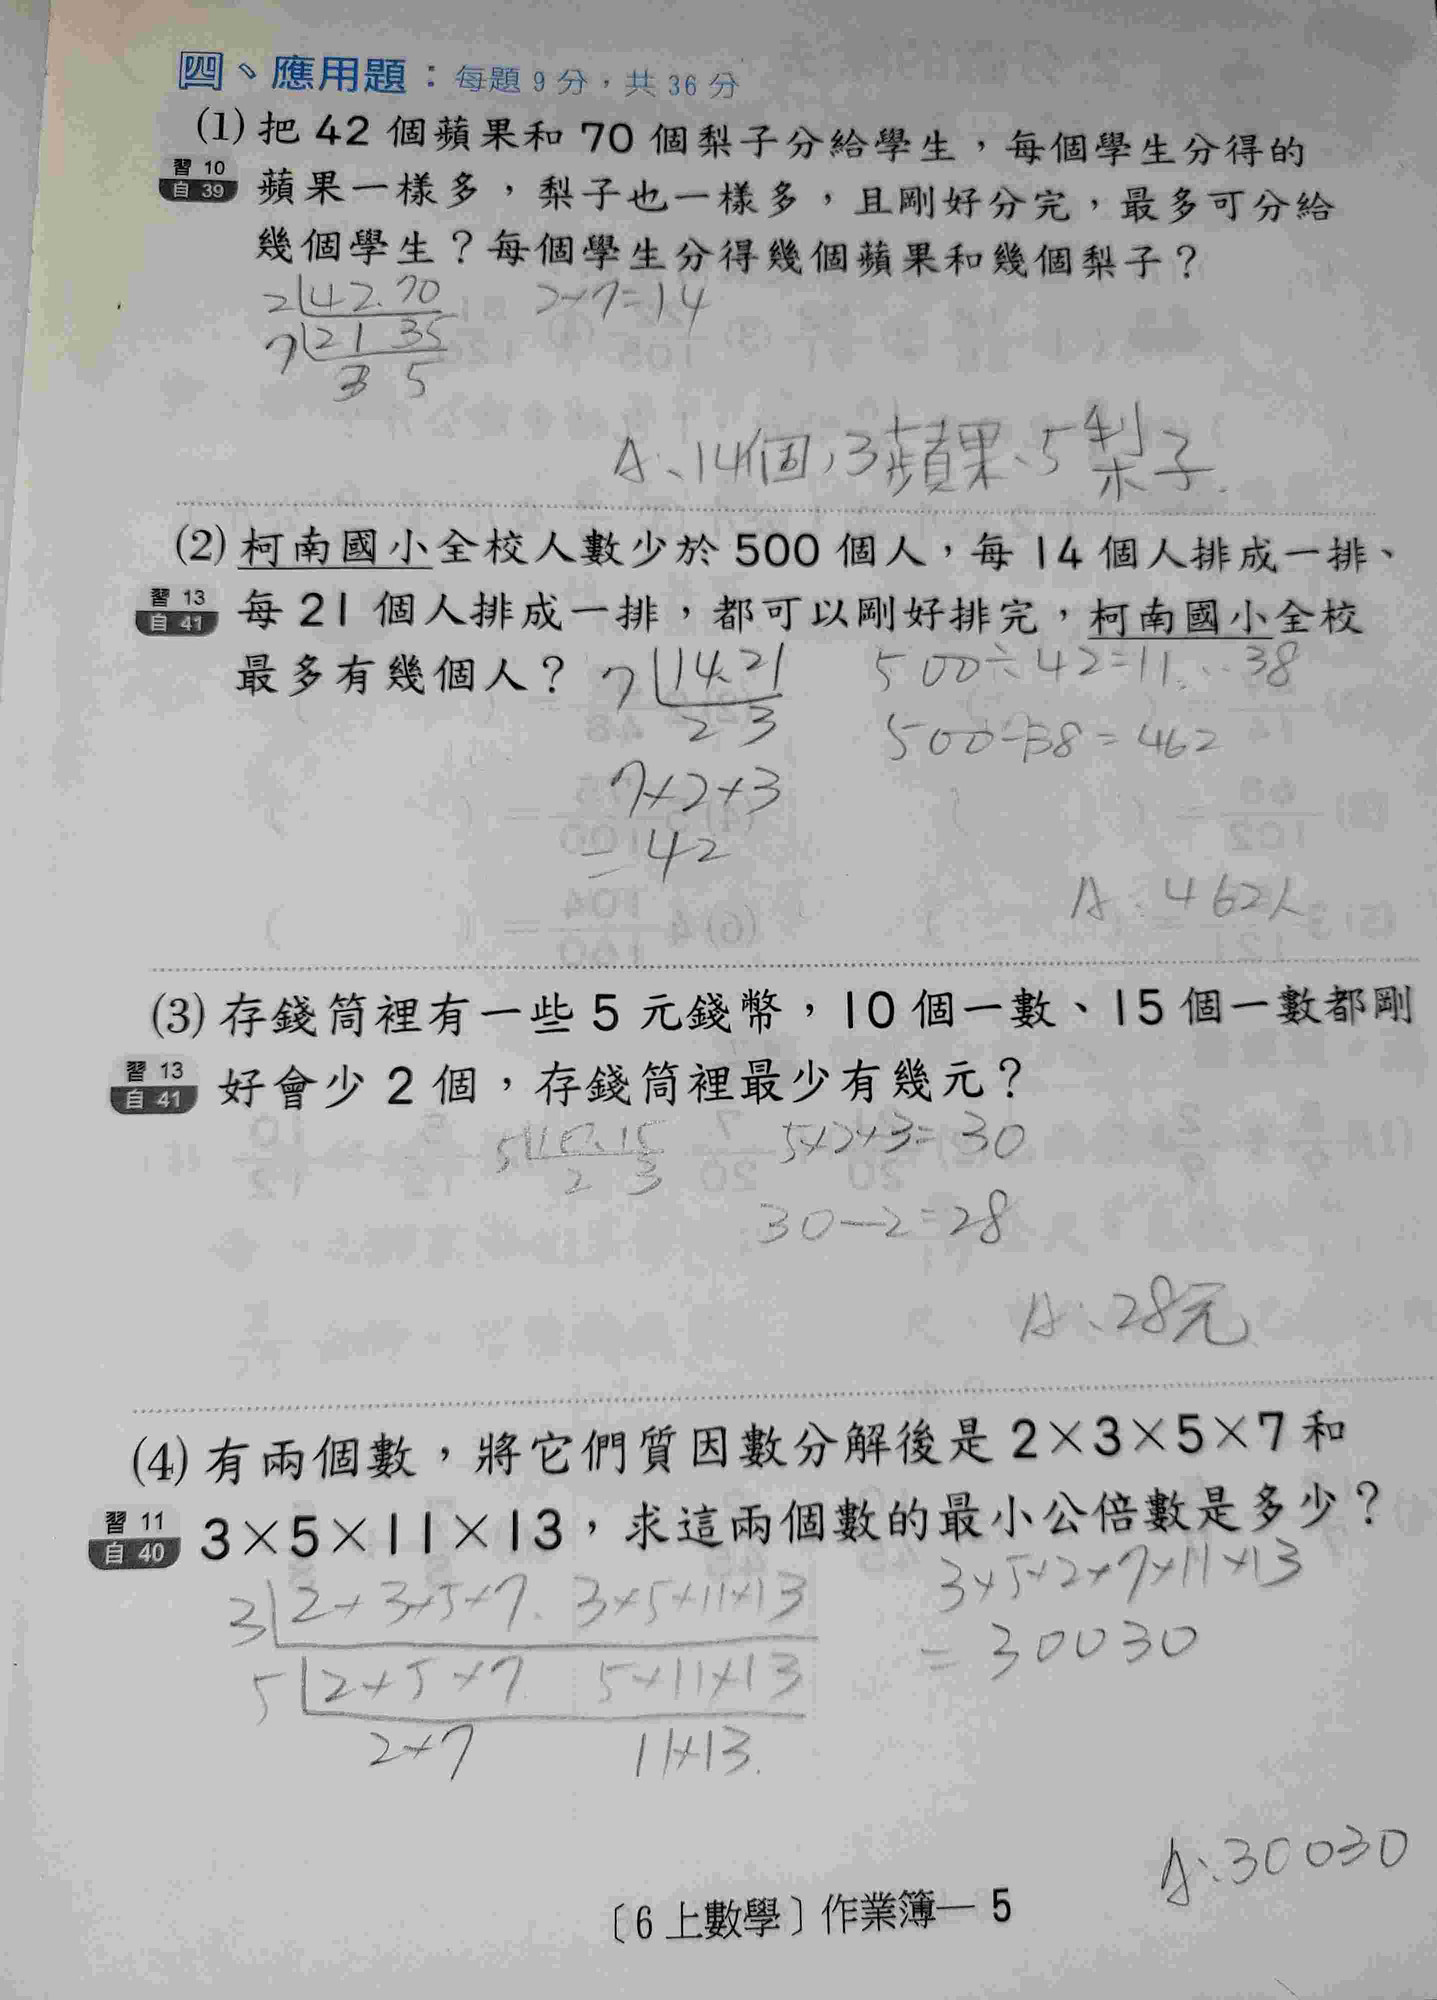 四、應用題：每題 9 分，共 36 分
(1) 把 42 個蘋果和 70 個梨子分給學生，每個學生分得的
習 10
自 39
蘋果一樣多，梨子也一樣多，且剛好分完，最多可分給
幾個學生？每個學生分得幾個蘋果和幾個梨子？
2 42.70
2×7=14
7 21 35
3 5
A:、14個,3蘋果、5梨子.
(2) 柯南國小全校人數少於 500 個人，每 14 個人排成一排、
習 13
自 41
每 21 個人排成一排，都可以剛好排完，柯南國小全校
最多有幾個人？
7 14.21
2 3
500÷42=11...38
500-38=462
7×2×3
=42
A:462人
(3) 存錢筒裡有一些 5 元錢幣，10 個一數、15 個一數都剛
習 13
自 41
好會少 2 個，存錢筒裡最少有幾元？
5 10.15
2 3
5×2×3=30
30-2=28
A:、28元
(4) 有兩個數，將它們質因數分解後是 2×3×5×7 和
習 11
自 40
3×5×11×13，求這兩個數的最小公倍數是多少？
3 2×3×5×7. 3×5×11×13
3×5×2×7×11×13
=30030
5 2×5×7 5×11×13
2×7 11×13.
A:、30030
〔6 上數學〕作業簿— 5